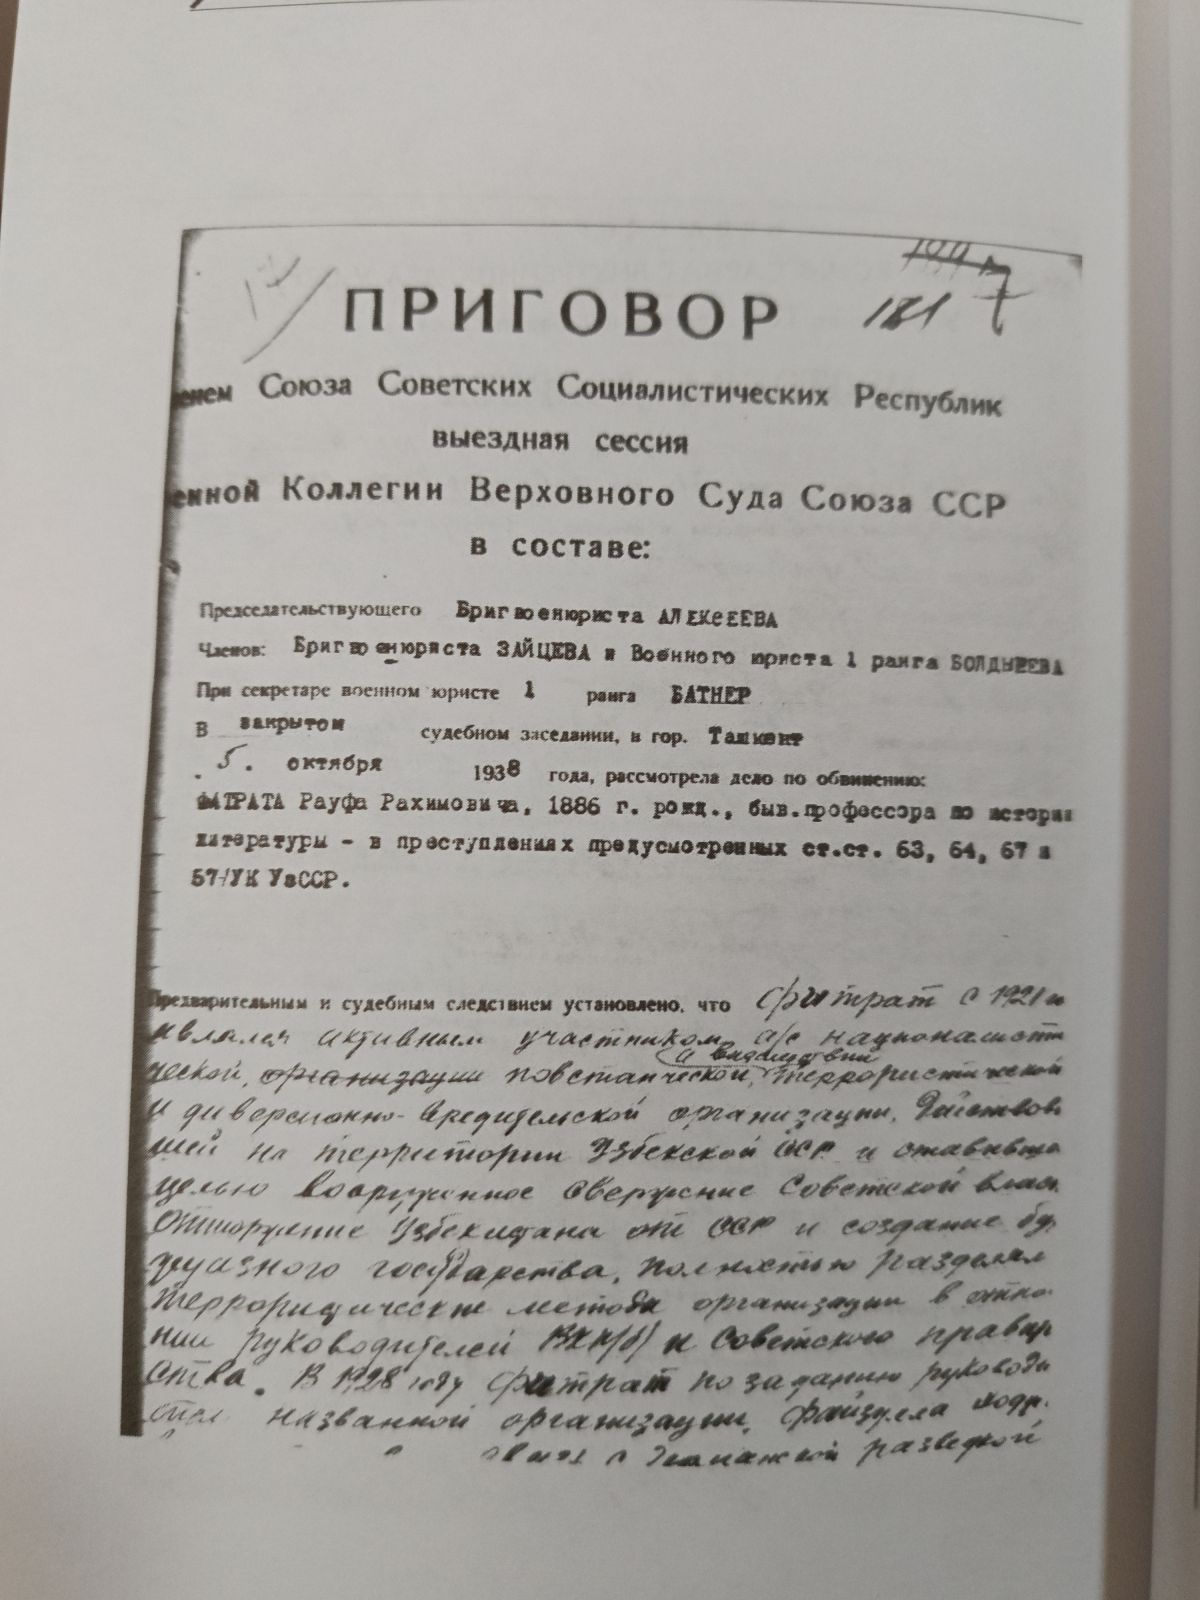 181
ПРИГОВОР
енем Союза Советских Социалистических Республик
выездная сессия
енной Коллегии Верховного Суда Союза ССР
в составе:
Председательствующего Бригвоенюриста АЛЕКСЕЕВА
Членов: Бригвоенюриста ЗАЙЦЕВА и Военного юриста 1 ранга БОЛДЫРЕВА
При секретаре военном юристе 1 ранга БАТНЕР
В закрытом судебном заседании, в гор. Ташкент
5. октября 1938 года, рассмотрела дело по обвинению:
ФИТРАТА Рауфа Рахимовича, 1886 г. рожд., быв.профессора по истории
литературы - в преступлениях предусмотренных ст.ст. 63, 64, 67 и
57/УК УзССР.
Предварительным и судебным следствием установлено, что Фитрат с 1921 г
являлся активным участником а/с националисти
ческой, организации повстанческой, а впоследствии террористической
и диверсионно-вредительской организации, действовав
шей на территории Узбекской ССР и ставивше
целью вооруженное свержение Советской власт
отторжение Узбекистана от СССР и создание бур
жуазного государства, полностью разделял
террористические методы организации в отно
нии руководителей ВКП(б) и Советского правит
ства. В 1928 году Фитрат по заданию руководи
названной организации, Файзулла Ходж
с Германской разведкой